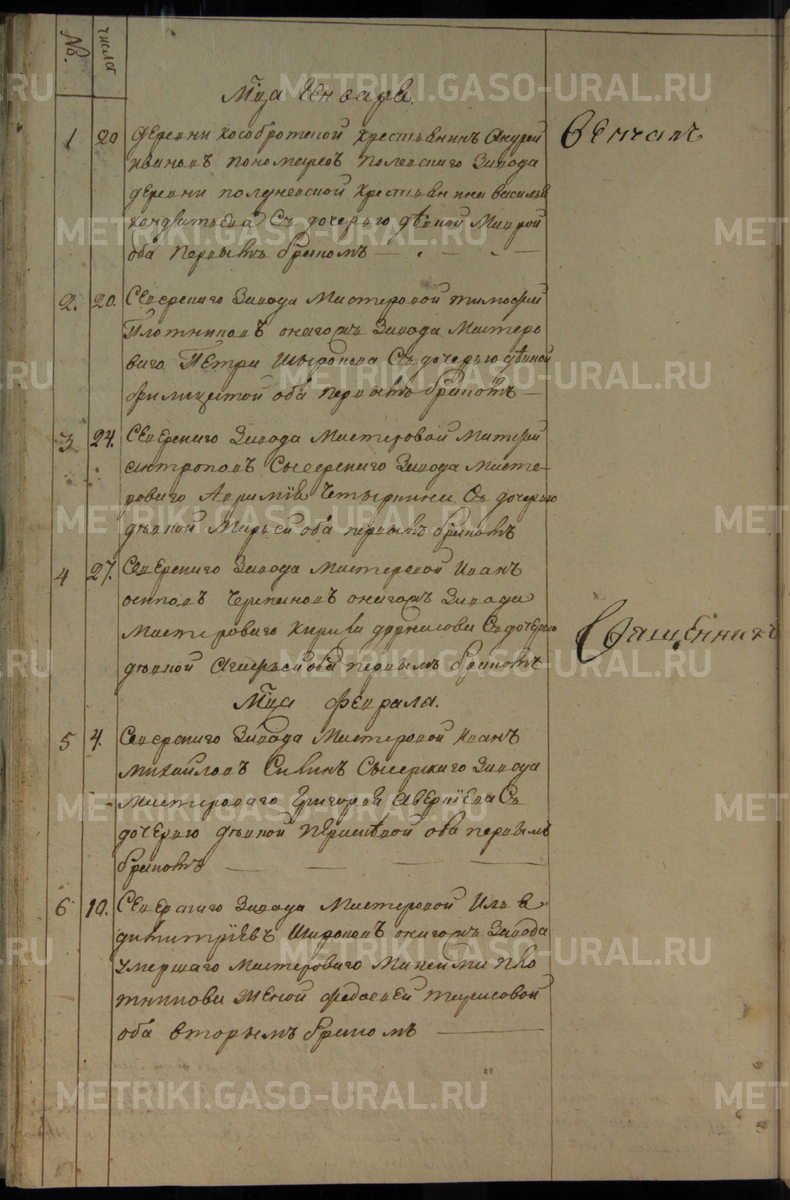 №. числа
Мца Генваря.
1 20 деревни Кособротской крестьянинъ Андрей
Ивановъ Пономаревъ Полевскаго завода
деревни Полдневской крестьянина Василья
Кондратьева Съ дочерью дѣвкой Маврой
оба первымъ бракомъ
Венчал
2. 20. Северскаго завода Мастеровой Тимофей
Плотниковъ онагожъ завода Мастеро
ваго Петра Шафонова Съ дочерью дѣвкой
оба первымъ бракомъ
3 24. Северскаго завода Мастеровой Матвей
Антроповъ Сысерскаго завода Масте-
роваго Съ дочерью
дѣвкой Марьей оба первымъ бракомъ
4 27. Северскаго завода Мастеровой Иванъ
Осиповъ Черепановъ онагожъ завода
Мастероваго Кирила Съ дочерью
дѣвкой оба первымъ бракомъ
Священникъ
Мца Февраля.
5 4. Северскаго завода Мастеровой Иванъ
Михайловъ Савинъ Сысерскаго завода
Мастероваго Григорья Аверкіева Съ
дочерью дѣвкой оба первымъ
бракомъ
6 10. Северскаго завода Мастеровой Илья
Дмитріевъ онагожъ завода
умершаго Мастероваго Пло
тникова женой Федосьей Тарасовой
оба вторымъ бракомъ
METRIKI.GASO-URAL.RU